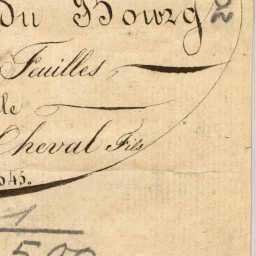 du Bourg
Feuilles
Cheval Fils
1
500